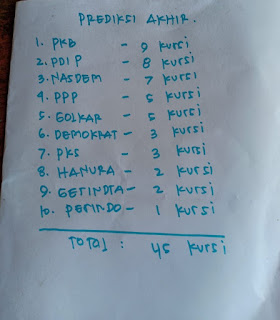 PREDIKSI AKHIR.
1. PKB - 9 KURSI
2. PDIP - 8 KURSI
3. NASDEM - 7 KURSI
4. PPP - 5 KURSI
5. GOLKAR - 5 KURSI
6. DEMOKRAT - 3 KURSI
7. PKS - 3 KURSI
8. HANURA - 2 KURSI
9. GERINDRA - 2 KURSI
10. PERINDO - 1 KURSI
TOTAL : 45 KURSI